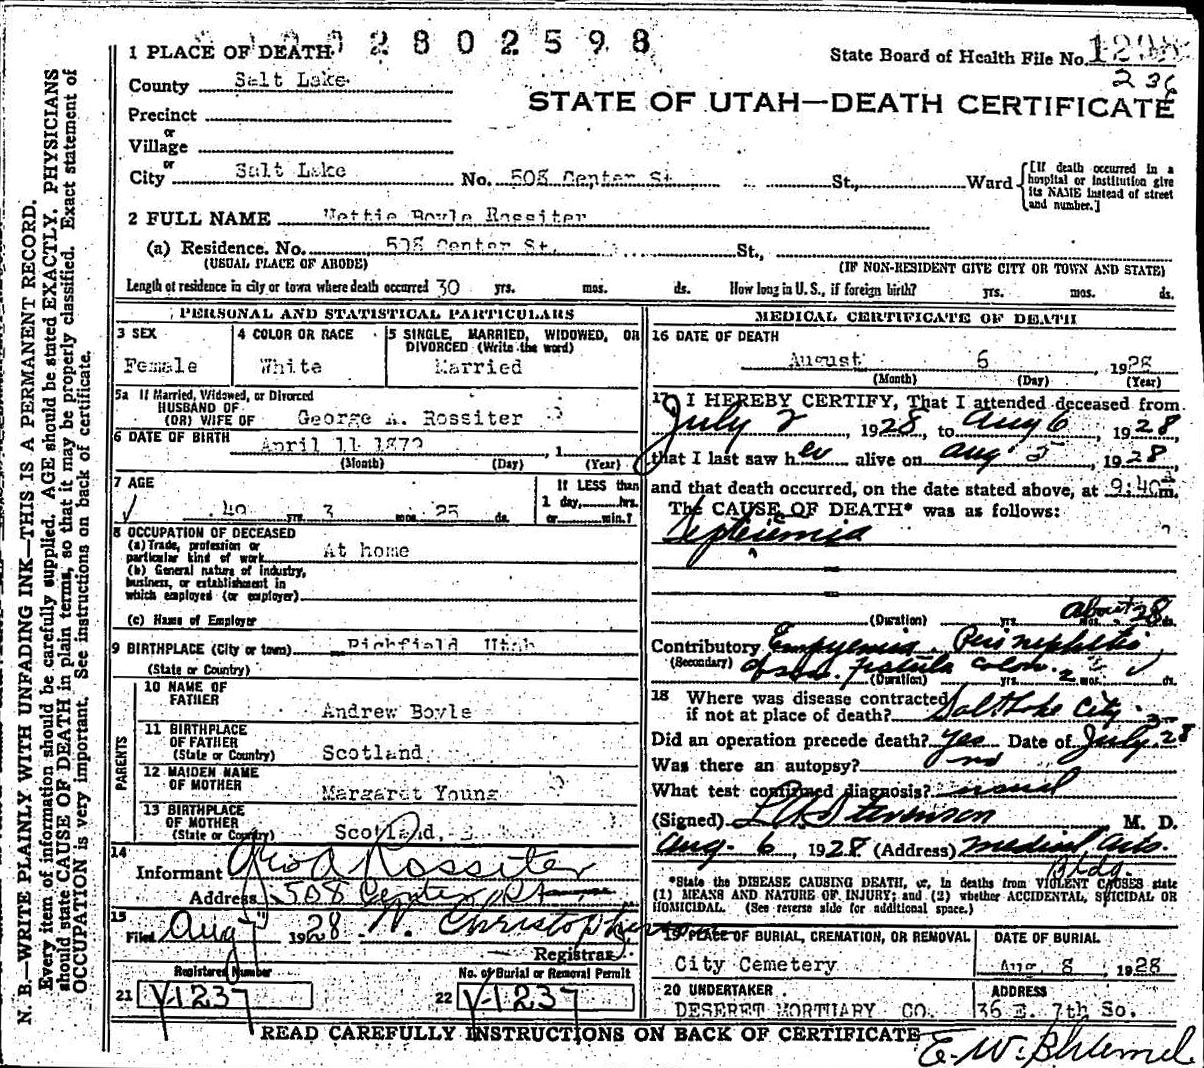 2802598
1 PLACE OF DEATH
State Board of Health File No. 1298
236
County Salt Lake
STATE OF UTAH—DEATH CERTIFICATE
Precinct
or
Village
or
City Salt Lake No. 508 Center St. St., Ward
[If death occurred in a hospital or institution give its NAME instead of street and number.]
2 FULL NAME Nettie Boyle Rossiter
(a) Residence. No. 508 Center St. St.,
(USUAL PLACE OF ABODE) (IF NON-RESIDENT GIVE CITY OR TOWN AND STATE)
Length of residence in city or town where death occurred 30 yrs. mos. ds. How long in U. S., if foreign birth? yrs. mos. ds.
PERSONAL AND STATISTICAL PARTICULARS
3 SEX 4 COLOR OR RACE 5 SINGLE, MARRIED, WIDOWED, OR DIVORCED (Write the word)
Female White Married
5a If Married, Widowed, or Divorced
HUSBAND OF
(OR) WIFE OF George A. Rossiter
6 DATE OF BIRTH April 11 , 1
(Month) (Day) (Year)
7 AGE
yrs. 3 mos. 25 ds.
If LESS than
1 day, hrs.
or min.?
8 OCCUPATION OF DECEASED
(a) Trade, profession or
particular kind of work At home
(b) General nature of industry,
business, or establishment in
which employed (or employer)
(c) Name of Employer
9 BIRTHPLACE (City or town) Richfield Utah
(State or Country)
PARENTS
10 NAME OF
FATHER Andrew Boyle
11 BIRTHPLACE
OF FATHER
(State or Country) Scotland
12 MAIDEN NAME
OF MOTHER Margaret Young
13 BIRTHPLACE
OF MOTHER
(State or Country) Scotland,
14
Informant Geo A Rossiter
Address 508 Center St
15
Filed Aug 7 1928 W. Christopherson
Registrar.
Registered Number No. of Burial or Removal Permit
21 V-1237 22 V-1237
MEDICAL CERTIFICATE OF DEATH
16 DATE OF DEATH
August 6 , 1928
(Month) (Day) (Year)
17 I HEREBY CERTIFY, That I attended deceased from
July 2 , 1928, to Aug 6 , 1928,
that I last saw her alive on Aug 5 , 1928,
and that death occurred, on the date stated above, at 9:40 m.
The CAUSE OF DEATH* was as follows:
Septicemia
about 28
(Duration) yrs. mos. ds.
Contributory Empyemia Perinephritic
(Secondary) fistula colon. 2
(Duration) yrs. mos. ds.
18 Where was disease contracted
if not at place of death? Salt Lake City
Did an operation precede death? yes Date of July 3-28
Was there an autopsy? no
What test confirmed diagnosis? usual
(Signed) Stevenson M. D.
Aug. 6 , 1928 (Address) Medical Arts.
Bldg.
*State the DISEASE CAUSING DEATH, or, in deaths from VIOLENT CAUSES state
(1) MEANS AND NATURE OF INJURY; and (2) whether ACCIDENTAL, SUICIDAL OR
HOMICIDAL. (See reverse side for additional space.)
19 PLACE OF BURIAL, CREMATION, OR REMOVAL DATE OF BURIAL
City Cemetery Aug 8 , 1928
20 UNDERTAKER ADDRESS
DESERET MORTUARY CO. 36 E. 7th So.
READ CAREFULLY INSTRUCTIONS ON BACK OF CERTIFICATE
N. B.—WRITE PLAINLY WITH UNFADING INK—THIS IS A PERMANENT RECORD.
Every item of information should be carefully supplied. AGE should be stated EXACTLY. PHYSICIANS
should state CAUSE OF DEATH in plain terms, so that it may be properly classified. Exact statement of
OCCUPATION is very important. See instructions on back of certificate.